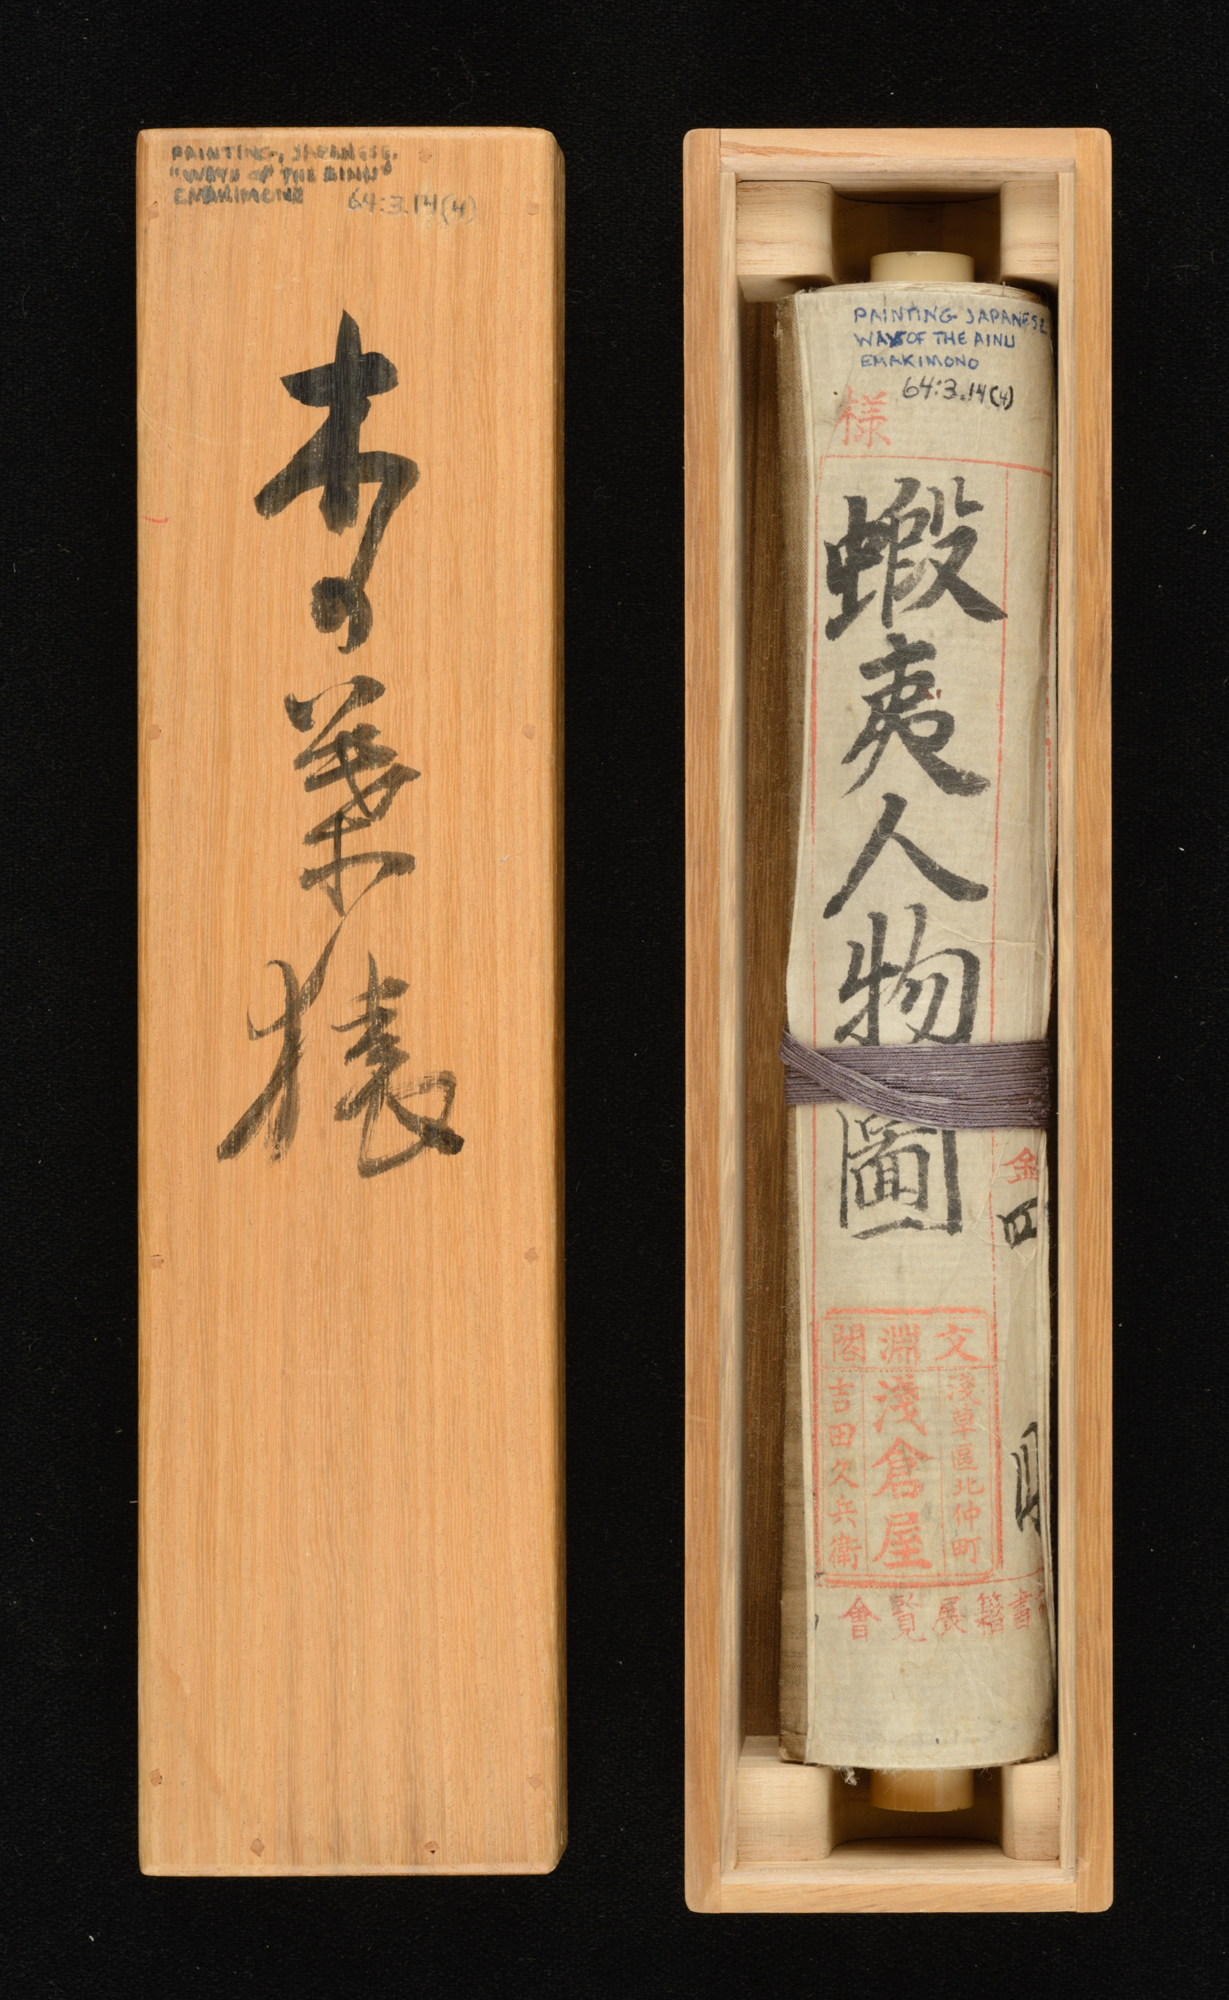 PAINTING, JAPANESE.
"WAYS OF THE AINU"
EMAKIMONO 64:3.14(4)
木の葉猿
PAINTING JAPANESE
WAYS OF THE AINU
EMAKIMONO
64:3.14(4)
様
蝦夷人物圖
金四
文淵閣
淺草區北仲町
淺倉屋
吉田久兵衛
書籍展覧會